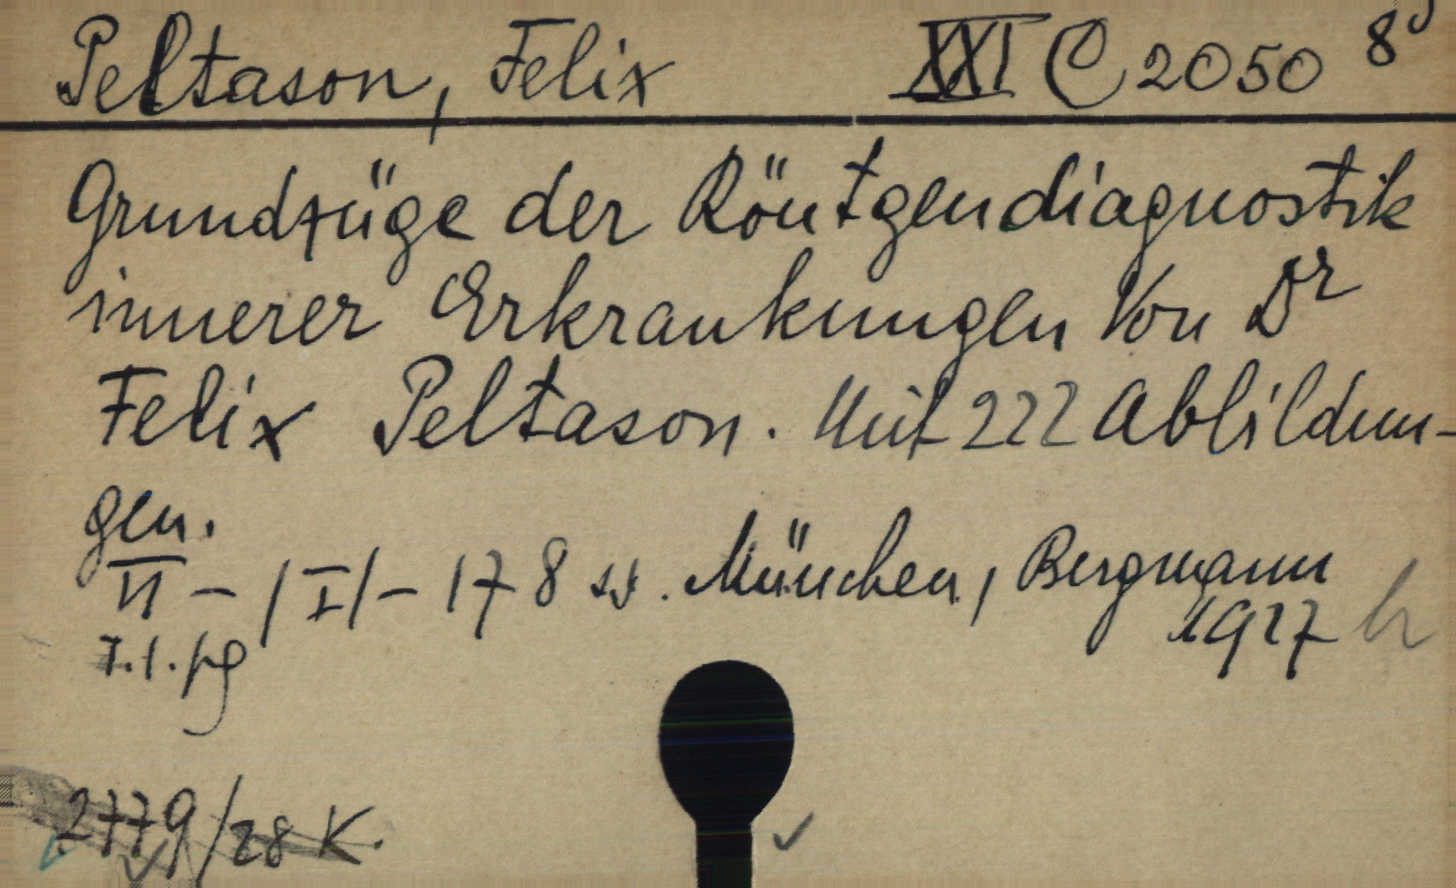 Peltason, Felix XXI C 2050 8°
Grundzüge der Röntgendiagnostik
innerer Erkrankungen Von Dr
Felix Peltason. Mit 222 Abbildun-
gen.
VI - /I/ - 178 ss. München, Bergmann
1927 h
7.1. pg
2779/28 K.